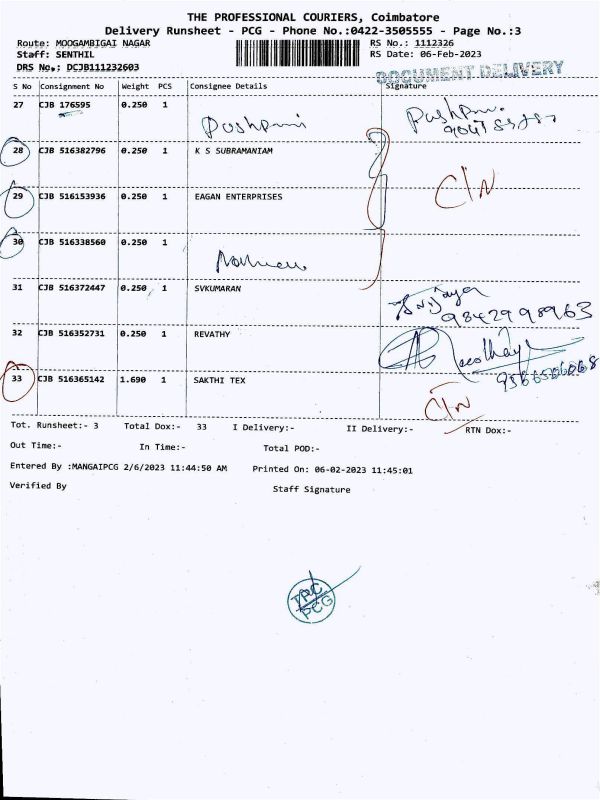 THE PROFESSIONAL COURIERS, Coimbatore
Delivery Runsheet - PCG - Phone No.:0422-3505555 - Page No.:3
Route: MOOGAMBIGAI NAGAR RS No.: 1112326
Staff: SENTHIL RS Date: 06-Feb-2023
DRS No.: DCJB111232603
DOCUMENT DELIVERY
S No Consignment No Weight PCS Consignee Details Signature
27 CJB 176595 0.250 1
28 CJB 516382796 0.250 1 K S SUBRAMANIAM
C/N
29 CJB 516153936 0.250 1 EAGAN ENTERPRISES
30 CJB 516338560 0.250 1
31 CJB 516372447 0.250 1 SVKUMARAN
9842998963
32 CJB 516352731 0.250 1 REVATHY
33 CJB 516365142 1.690 1 SAKTHI TEX
C/N
Tot. Runsheet:- 3 Total Dox:- 33 I Delivery:- II Delivery:- RTN Dox:-
Out Time:- In Time:- Total POD:-
Entered By :MANGAIPCG 2/6/2023 11:44:50 AM Printed On: 06-02-2023 11:45:01
Verified By Staff Signature
TPC
PCG